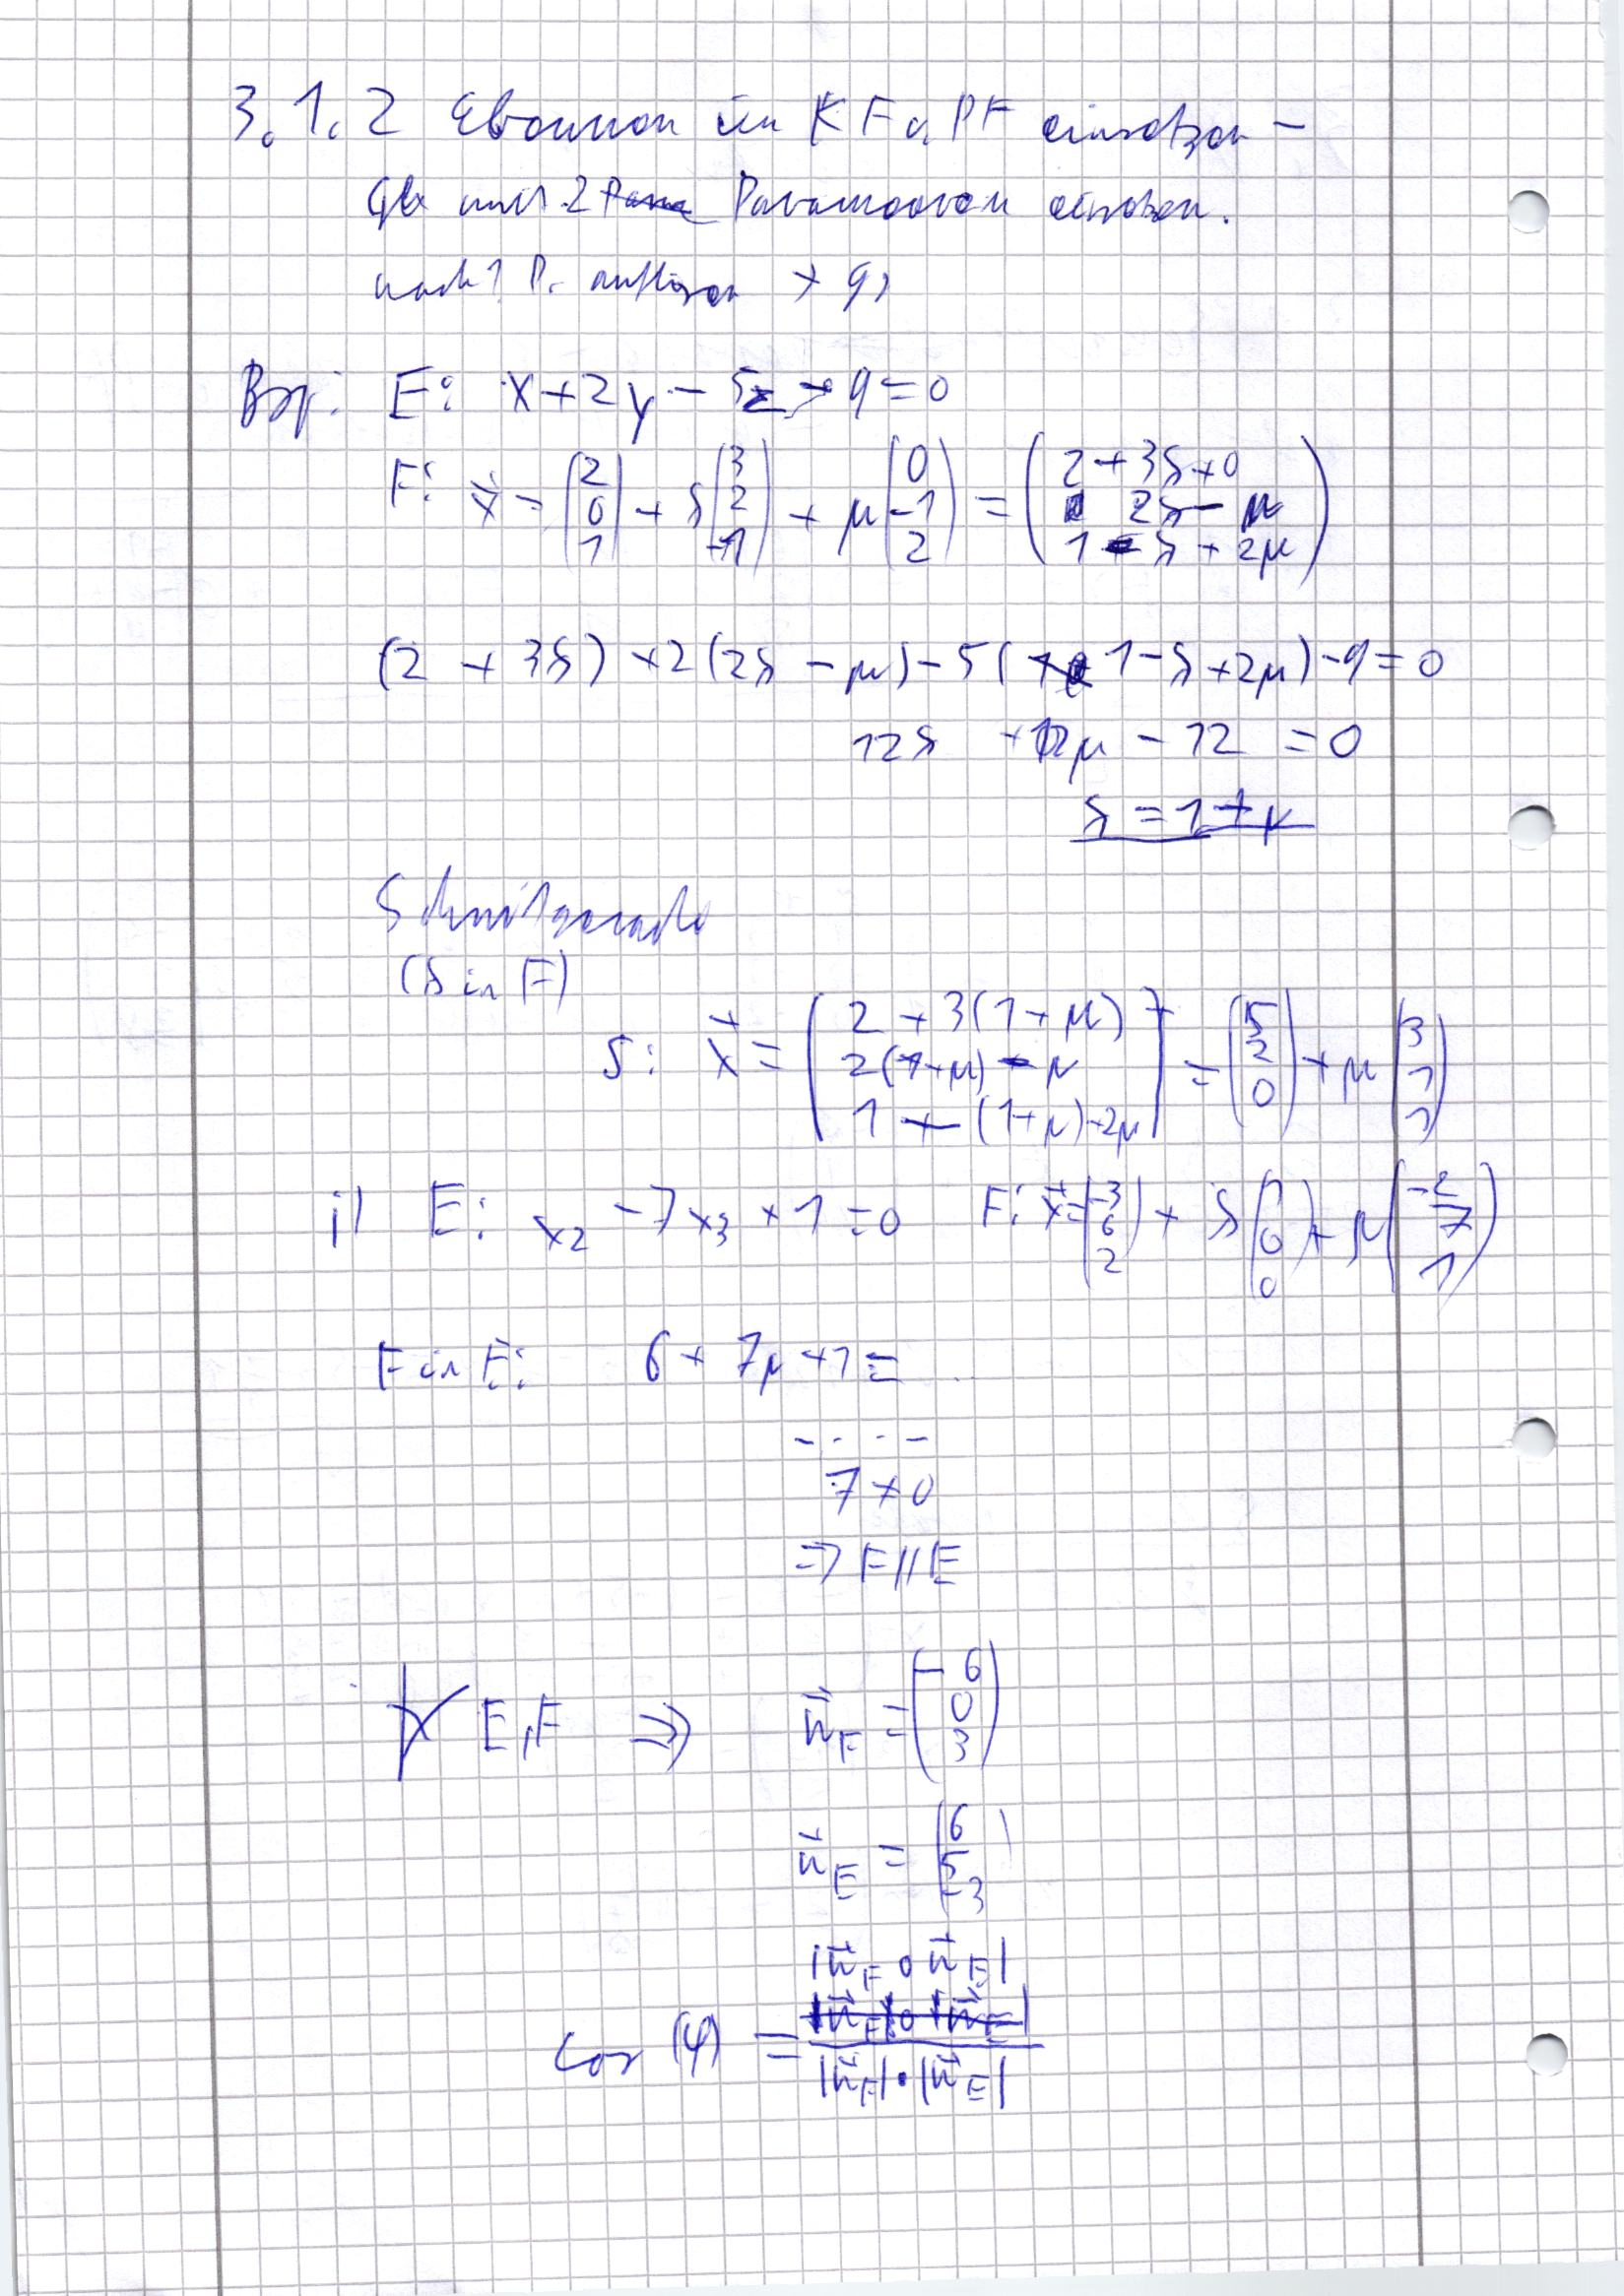 3.1.2 Ebenen in KF u. PF einsetzen –
Glx mit 2 Parametern einsetzen.
nach 1 P. auflösen → g,
Bsp: E: x+2y – 5z – 9=0
F: x⃗ = (2 0 1) + s (3 2 -1) + μ (0 -1 2) = (2+3s+0 2s – μ 1 – s + 2μ)
(2 + 3s) + 2(2s – μ) – 5(1 – s + 2μ) – 9 = 0
12s + 12μ – 12 = 0
s = 1 + μ
Schnittgerade
(s in F)
S: x⃗ = (2 + 3(1+μ) 2(1+μ) – μ 1 – (1+μ)+2μ) = (5 2 0) + μ (3 1 1)
i) E: x2 – 7x3 + 1 = 0 F: x⃗ = (-3 6 2) + s (1 0 0) + μ (-2 7 1)
F in E: 6 + 7μ + 1 = ..
– - - –
7 ≠ 0
⇒ F ∥ E
∢ E,F ⇒ n⃗F = (-6 0 3)
n⃗E = (6 5 -3)
cos (φ) = |n⃗F ∘ n⃗E| / |n⃗F| · |n⃗E|